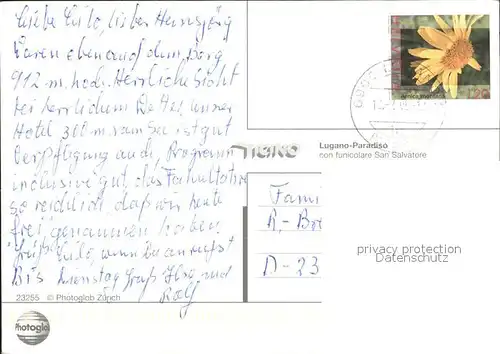 Liebe Lilo, lieber Heinzjörg
Waren eben auf dem Berg
912 m. hoch. Herrliche Sicht
bei herrlichem Wetter, unser
Hotel 300 m vom See ist gut
Verpflegung auch, Programm
inclusive gut, das Fakultative
so reichlich, daß wir heute
frei genommen haben.
Lilo, wenn Du anrufst
Bis Dienstag Gruß Ilse und
Rolf
23255 © Photoglob Zürich
Photoglob
TICINO
Lugano-Paradiso
con funicolare San Salvatore
Fami
R.-Br
D-23
privacy protection
Datenschutz
120